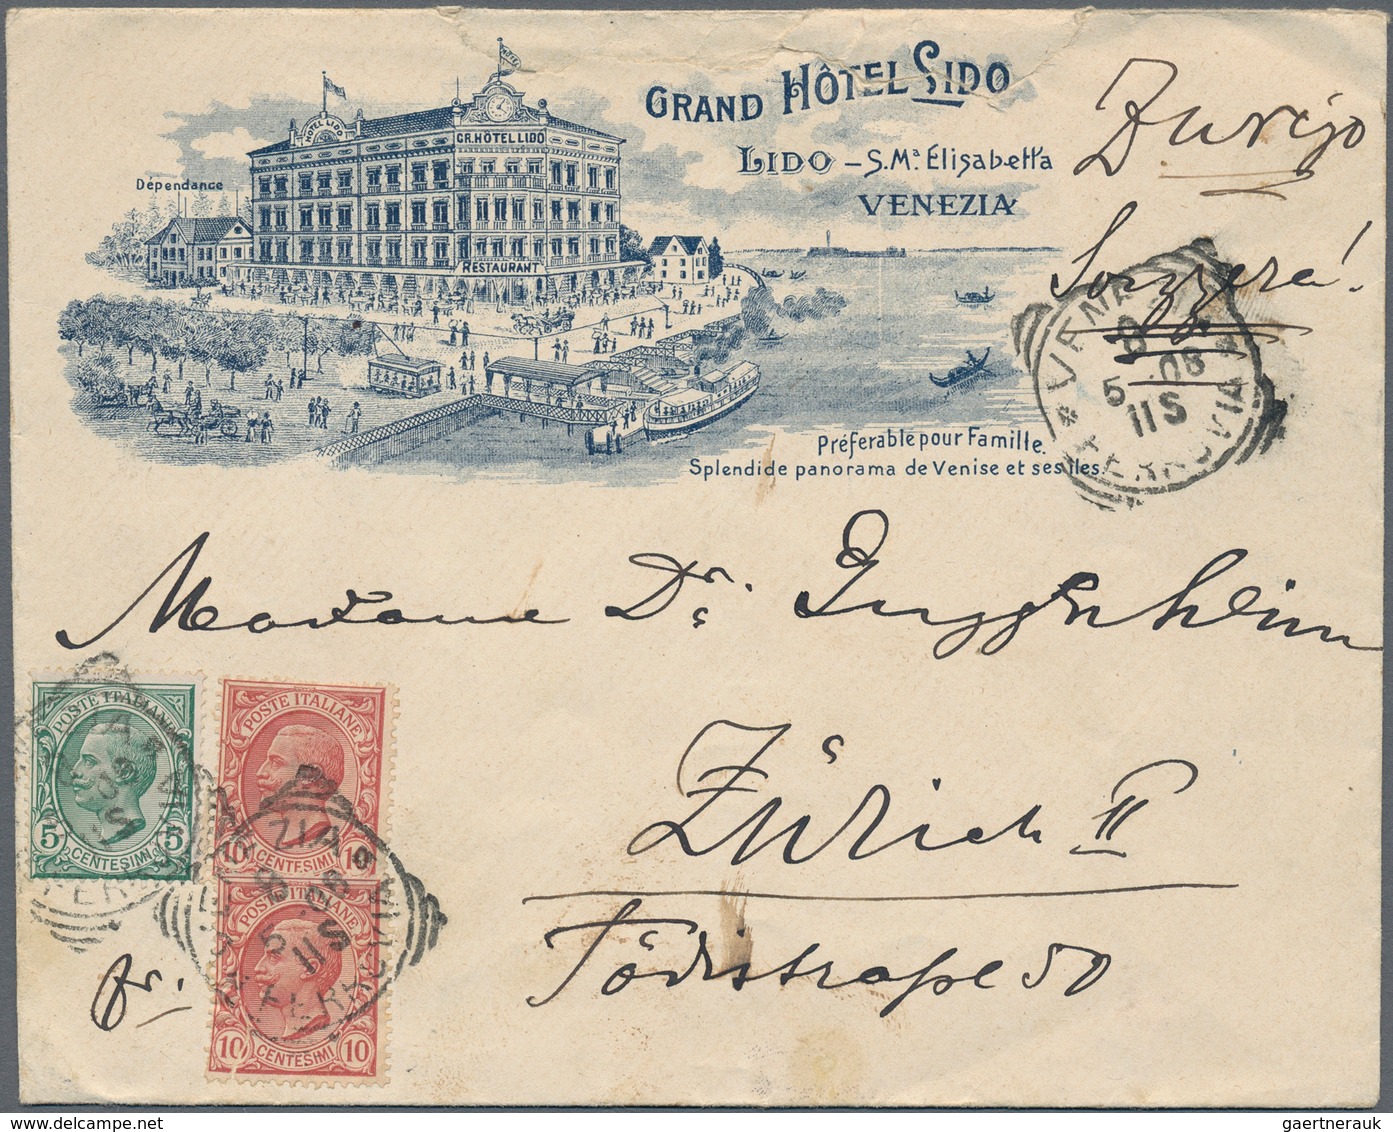 GRAND HÔTEL LIDO
LIDO – S.Mª Elisabetta
VENEZIA
Dépendance
HOTEL LIDO
GR. HÔTEL LIDO
RESTAURANT
Préferable pour Famille.
Splendide panorama de Venise et ses Iles.
Zurigo
Svizzera!
VENEZIA
8
5 08
11 S
* FERROVIA *
Madame Dr. Guggenheim
Zürich II
Tödistraße 50
fr.
POSTE ITALIANE
5 5
CENTESIMI
POSTE ITALIANE
10 10
CENTESIMI
POSTE ITALIANE
10 10
CENTESIMI
VENEZIA
8 08
5
11 S
FERROVIA
gaertnerauk